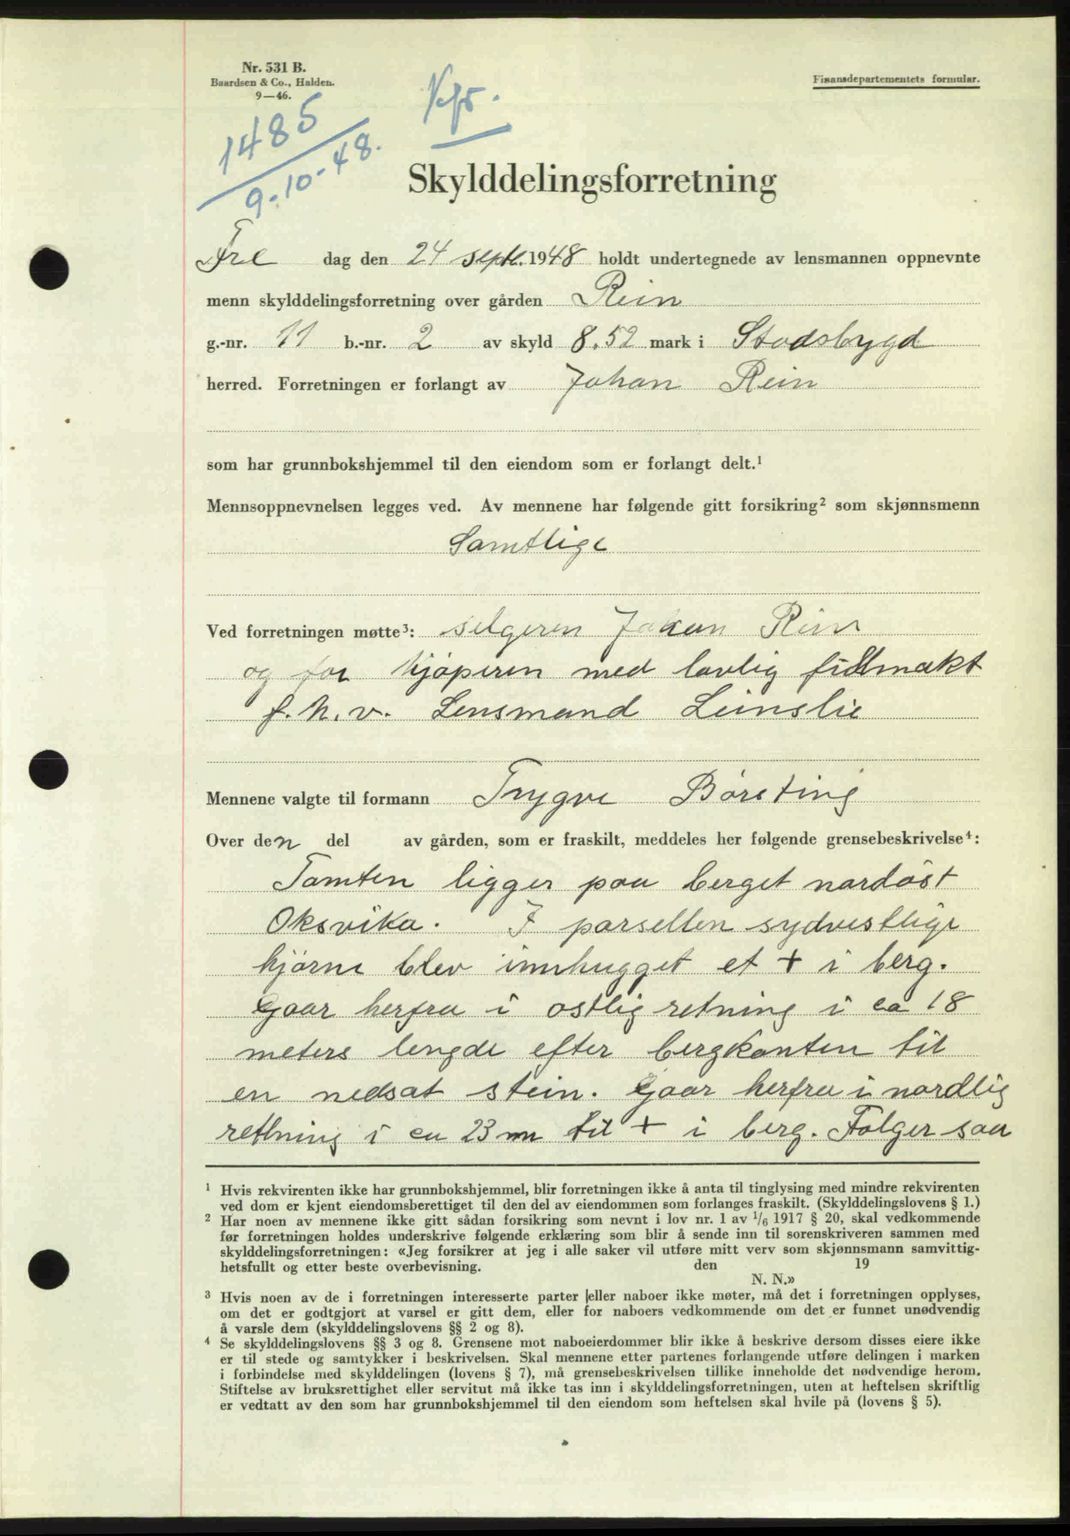 Nr. 531 B.
Baardsen & Co., Halden.
9—46.
Finansdepartementets formular.
Kfr.
1485
9-10-48.
Skylddelingsforretning
Fre dag den 24 sept. 1948 holdt undertegnede av lensmannen oppnevnte
menn skylddelingsforretning over gården Rein
g.-nr. 11 b.-nr. 2 av skyld 8.52 mark i Stadsbygd
herred. Forretningen er forlangt av Johan Rein
som har grunnbokshjemmel til den eiendom som er forlangt delt.¹
Mennsoppnevnelsen legges ved. Av mennene har følgende gitt forsikring² som skjønnsmenn
Samtlige
Ved forretningen møtte³: selgeren Johan Rein
og for kjöperen med lovlig fullmakt
f.h.v. Lensmand Leinslie
Mennene valgte til formann Trygve Börsting
Over den del av gården, som er fraskilt, meddeles her følgende grensebeskrivelse⁴:
Tomten ligger paa berget nordöst
Oksvika. I parsellen sydvestlige
hjörne blev innhugget et + i berg.
Gaar herfra i ostlig retning i ca 18
meters lengde efter bergkanten til
en nedsat stein. Gaar herfra i nordlig
rettning i ca 23 m til + i berg. Folger saa
¹ Hvis rekvirenten ikke har grunnbokshjemmel, blir forretningen ikke å anta til tinglysing med mindre rekvirenten
ved dom er kjent eiendomsberettiget til den del av eiendommen som forlanges fraskilt. (Skylddelingslovens § 1.)
² Har noen av mennene ikke gitt sådan forsikring som nevnt i lov nr. 1 av 1/6 1917 § 20, skal vedkommende
før forretningen holdes underskrive følgende erklæring som blir å sende inn til sorenskriveren sammen med
skylddelingsforretningen: «Jeg forsikrer at jeg i alle saker vil utføre mitt verv som skjønnsmann samvittig-
hetsfullt og etter beste overbevisning. den 19
N. N.»
³ Hvis noen av de i forretningen interesserte parter eller naboer ikke møter, må det i forretningen opplyses,
om det er godtgjort at varsel er gitt dem, eller for naboers vedkommende om det er funnet unødvendig
å varsle dem (skylddelingslovens §§ 2 og 8).
⁴ Se skylddelingslovens §§ 3 og 8. Grensene mot naboeierdommer blir ikke å beskrive dersom disses eiere ikke
er til stede og samtykker i beskrivelsen. Skal mennene etter partenes forlangende utføre delingen i marken
i forbindelse med skylddelingen (lovens § 7), må grensebeskrivelsen tillike inneholde det nødvendige herom.
Stiftelse av bruksrettighet eller servitut må ikke tas inn i skylddelingsforretningen, uten at heftelsen skriftlig
er vedtatt av den som har grunnbokshjemmel til den eiendom som heftelsen skal hvile på (lovens § 5).